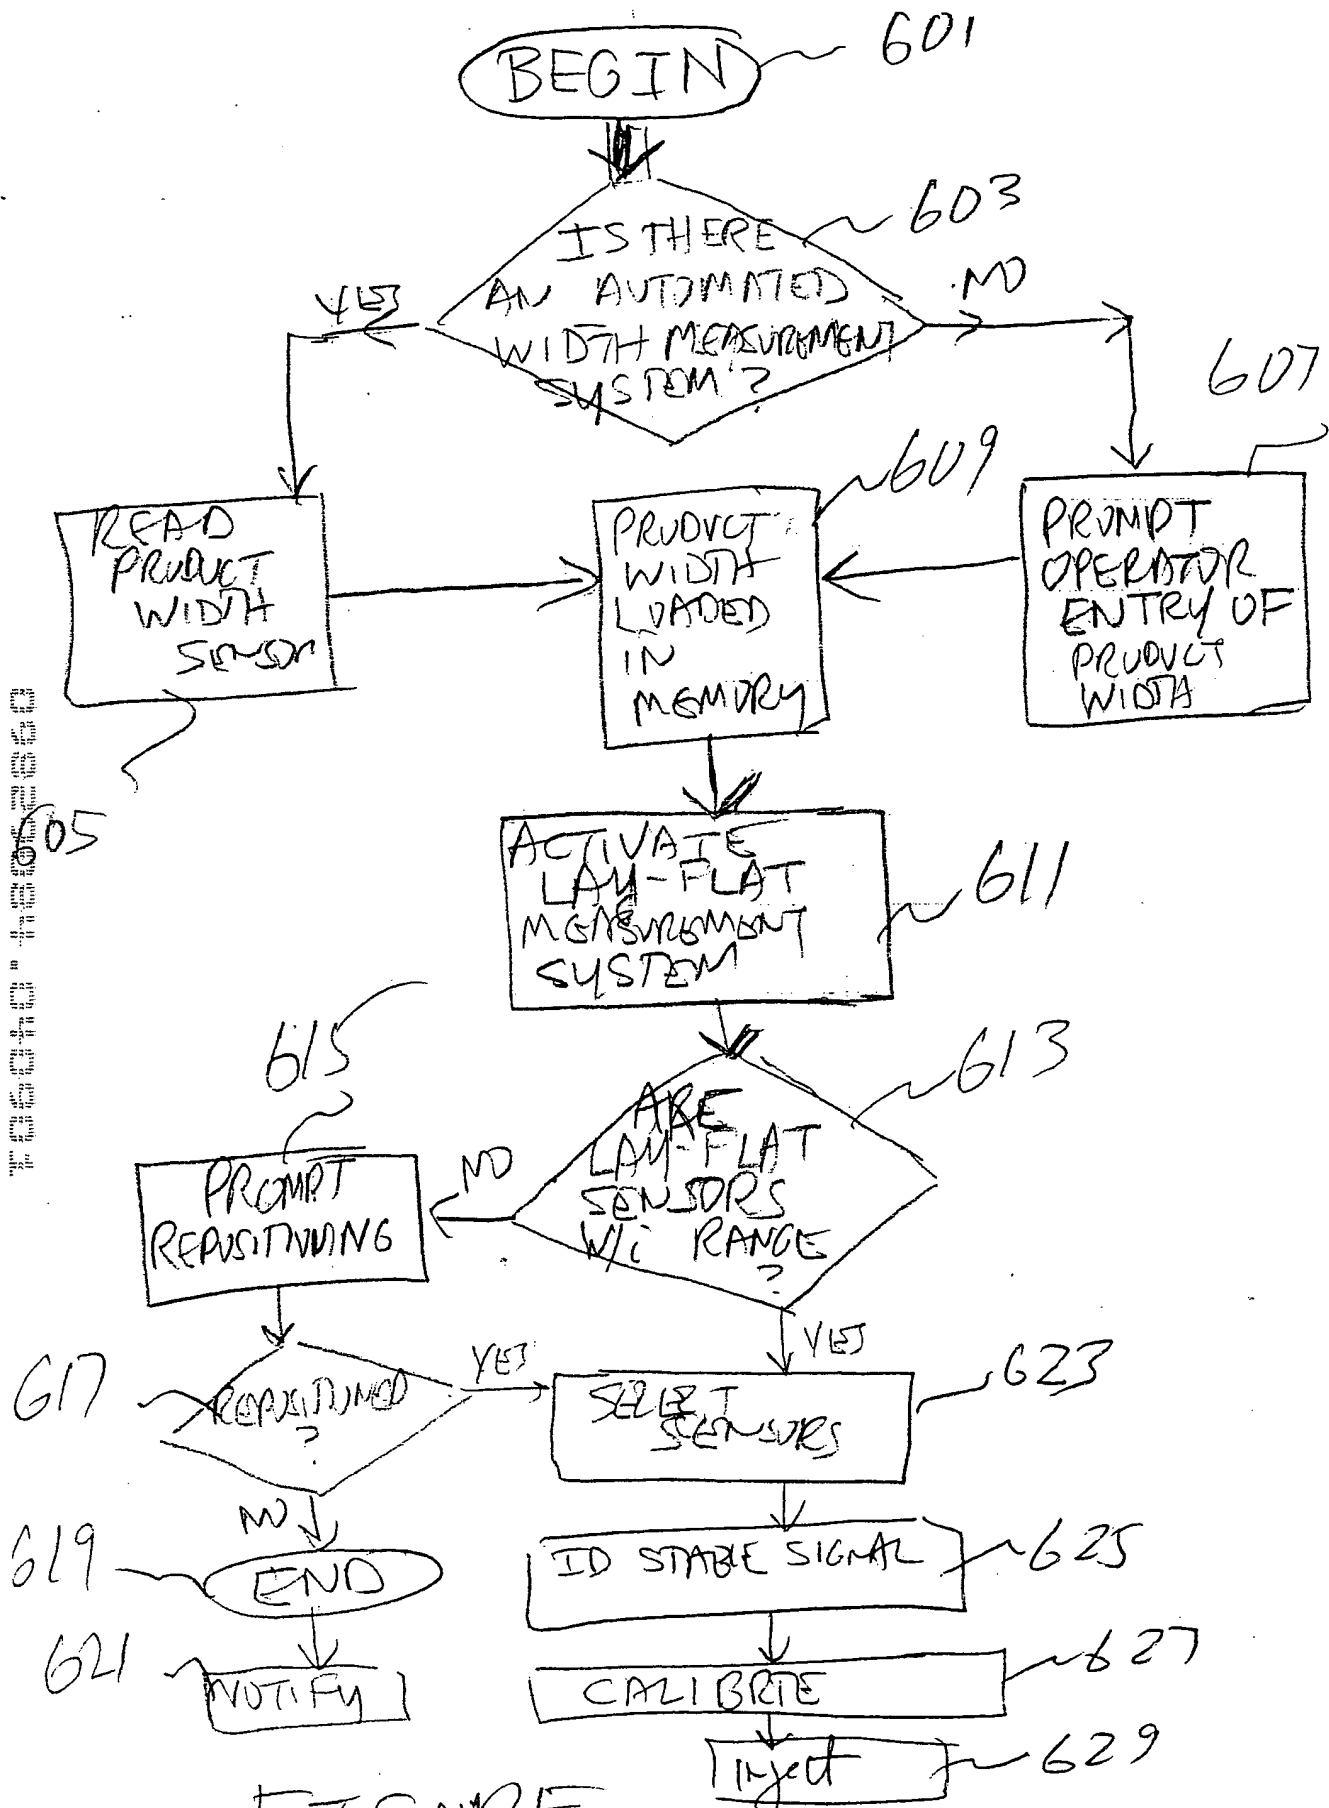 BEGIN
601
IS THERE
AN AUTOMATED
WIDTH MEASUREMENT
SYSTEM ?
603
YES
NO
607
609
READ
PRODUCT
WIDTH
SENSOR
PRODUCT
WIDTH
LOADED
IN
MEMORY
PROMPT
OPERATOR
ENTRY OF
PRODUCT
WIDTH
605
ACTIVATE
LAY-FLAT
MEASUREMENT
SYSTEM
611
615
613
ARE
LAY-FLAT
SENSORS
W/i RANGE
?
NO
PROMPT
REPOSITIONING
YES
617
REPOSITIONED
?
YES
SELECT
SENSORS
623
NO
619
END
ID STABLE SIGNAL
625
621
NOTIFY
CALIBRTE
627
Inject
629
FIGURE